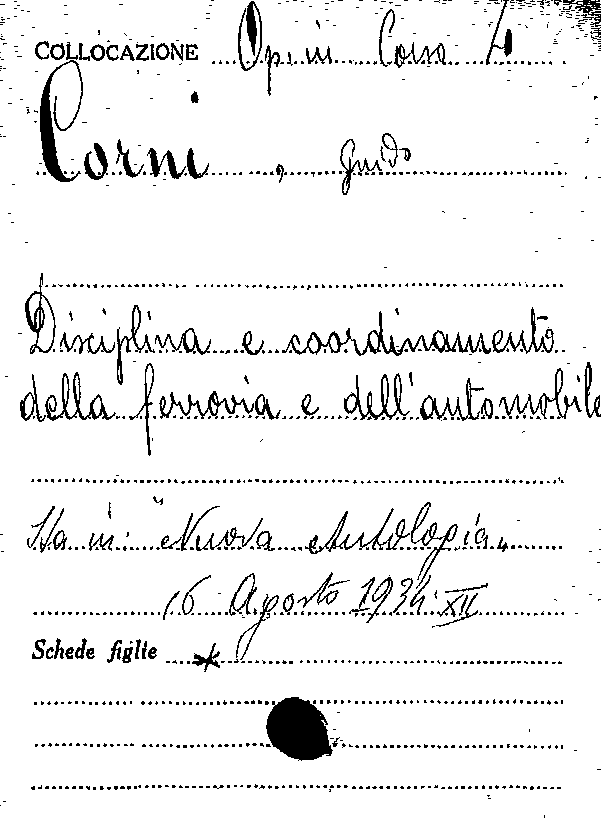 COLLOCAZIONE Op. in Corso 4
Corni, Guido
Disciplina e coordinamento
della ferrovia e dell'automobile
Sta in: "Nuova Antologia„
16 Agosto 1934·XII
Schede figlie *